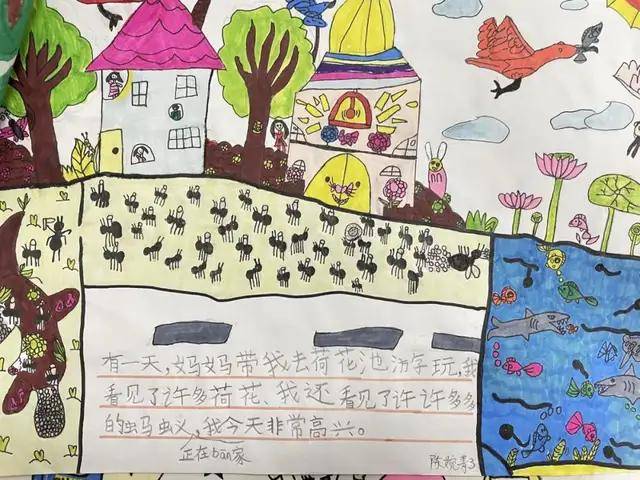 有一天,妈妈带我去荷花池游玩,我
看见了许多荷花、我还看见了许许多多
的蚂蚁,我今天非常高兴。
正在bān家